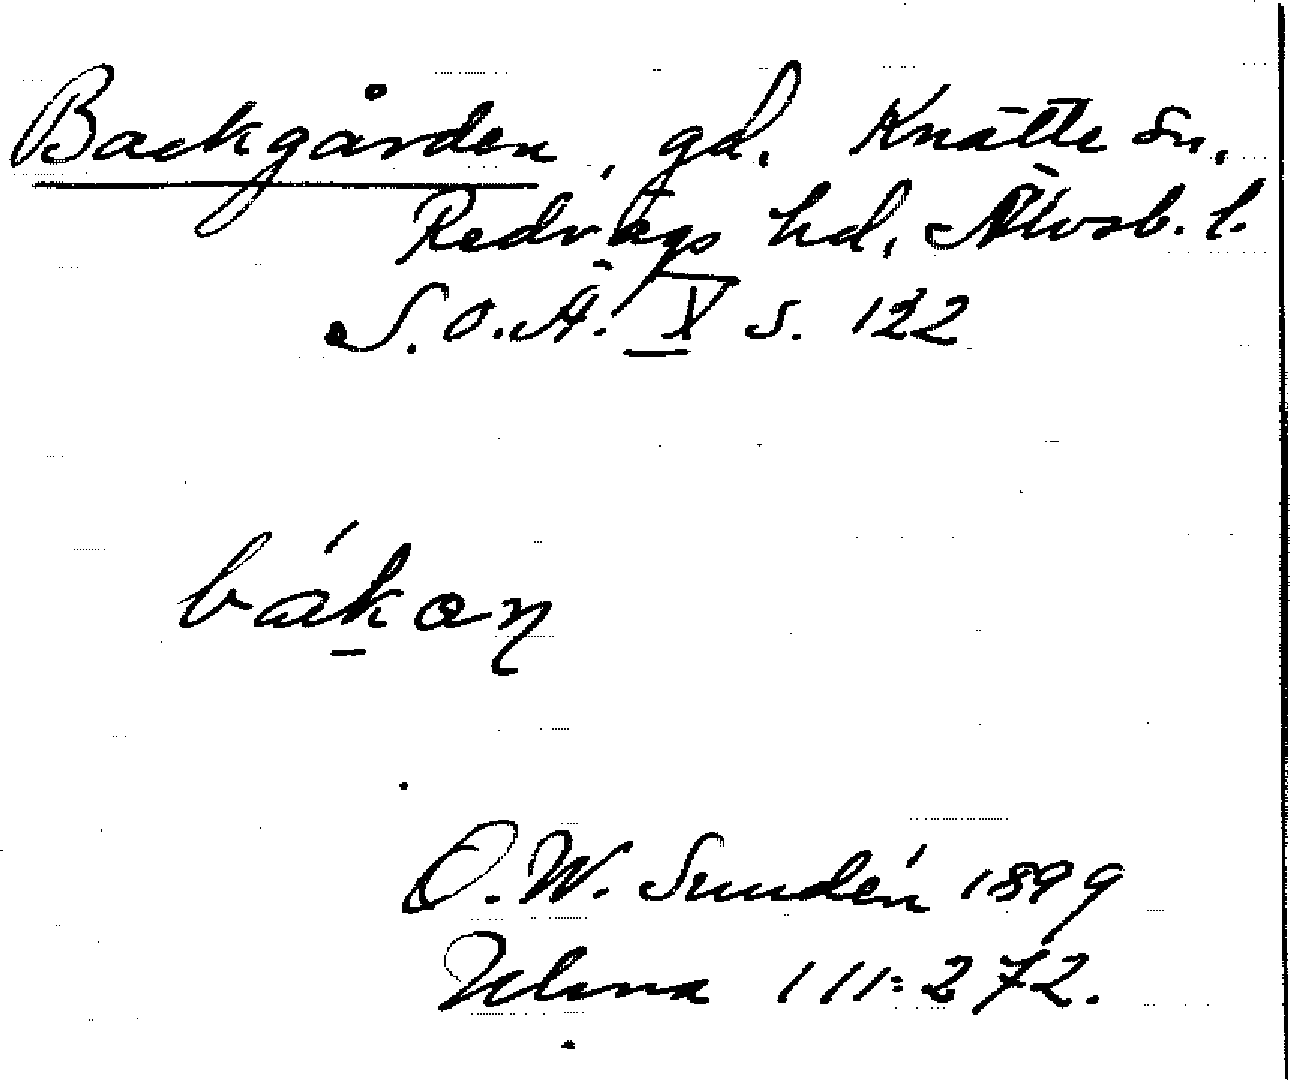 Backgården, gd. Knätte sn,
Redvägs hd, Älvsb. l.
S.O.Ä. X s. 122
bákan
O. W. Sundén 1899
111:272.